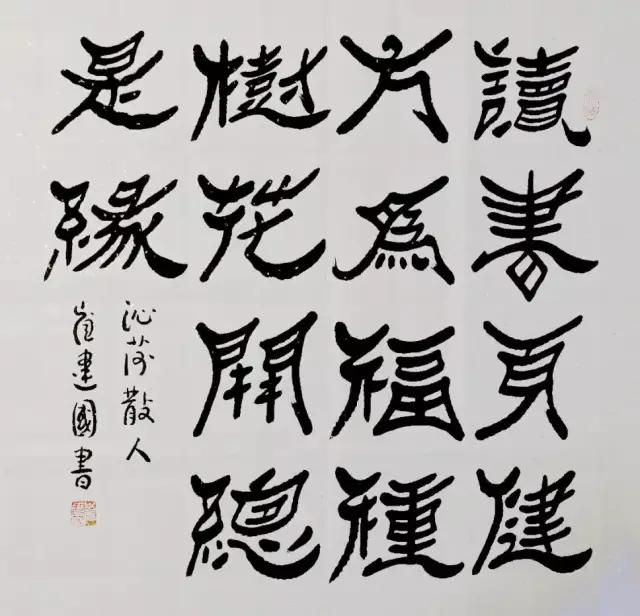 讀書身健
方為福種
樹花開總
是緣
沁散人
崔建國書